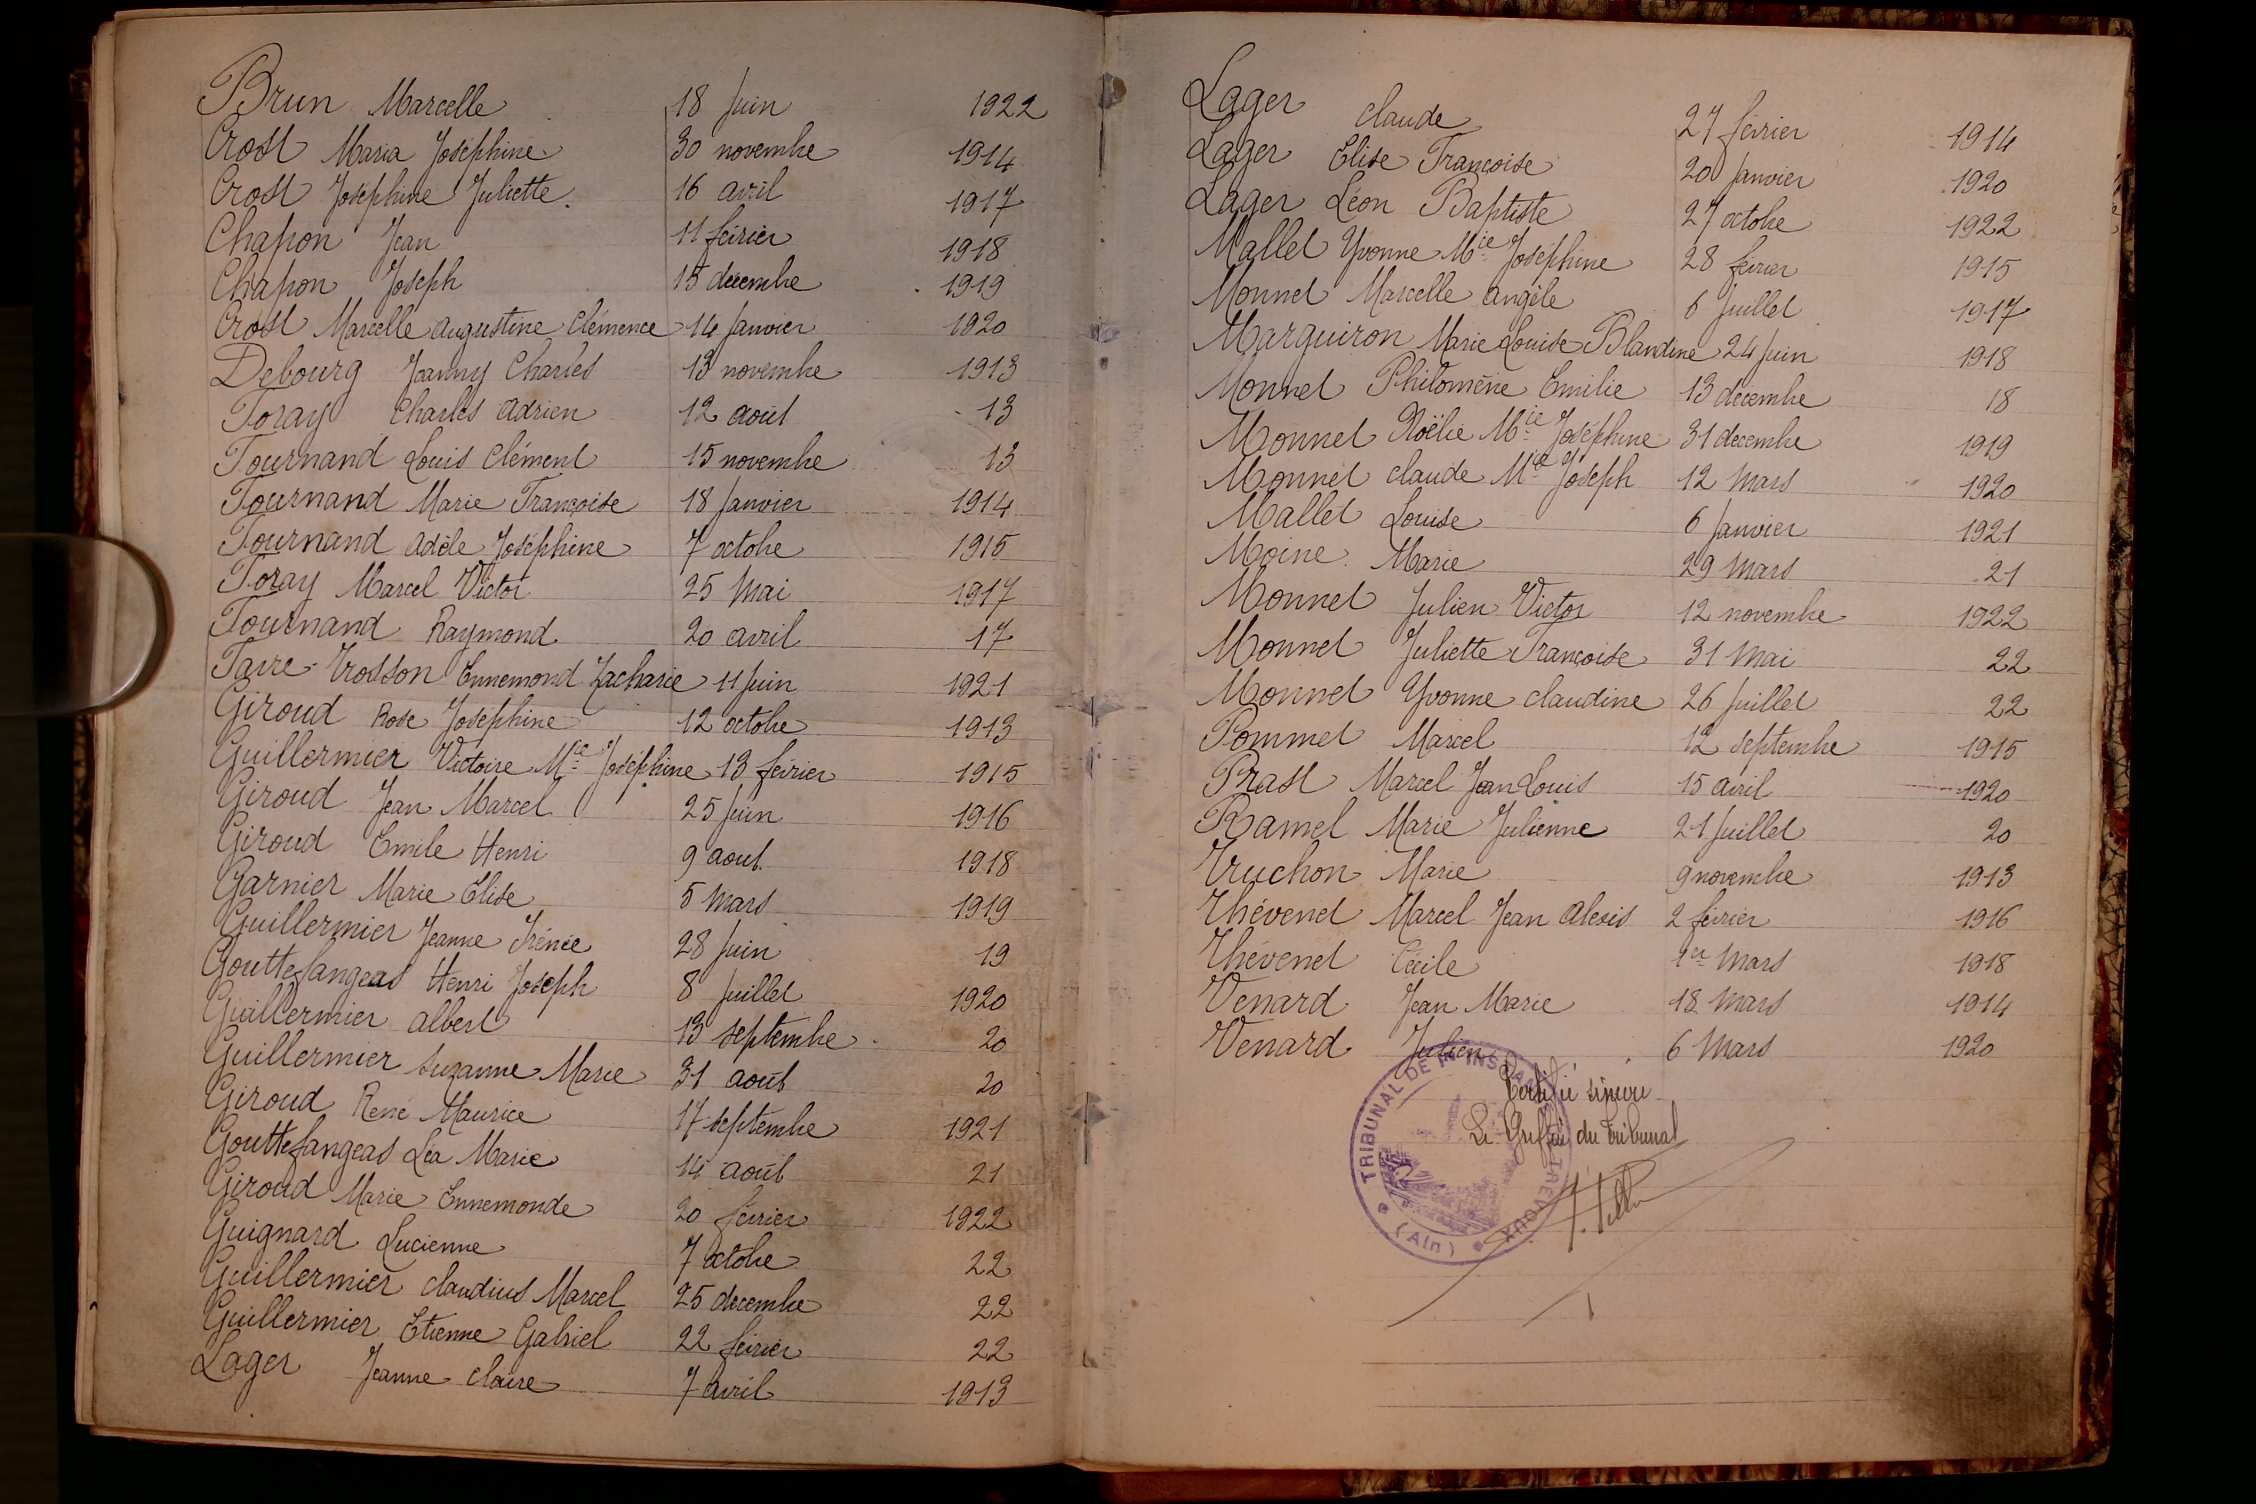 Brun Marcelle 18 Juin 1922
Crost Maria Joséphine 30 novembre 1914
Crost Joséphine Juliette. 16 avril 1917
Chapon Jean 11 février 1918
Chapon Joseph 15 décembre 1919
Crost Marcelle augustine Clémence 14 Janvier 1920
Debourg Joanny Charles 13 novembre 1913
Foray Charles adrien 12 août 13
Fournand Louis Clément 15 novembre 13
Fournand Marie Françoise 18 Janvier 1914
Fournand adèle Joséphine 7 octobre 1915
Foray Marcel Victor 25 Mai 1917
Fournand Raymond 20 avril 17
Favre-Trosson Ennemond Zacharie 11 Juin 1921
Giroud Rose Joséphine 12 octobre 1913
Guillermier Victoire Mie Joséphine 13 février 1915
Giroud Jean Marcel 25 Juin 1916
Giroud Emile Henri 9 aout 1918
Garnier Marie Elise 5 Mars 1919
Guillermier Jeanne Irénée 28 Juin 19
Gouttefangeas Henri Joseph 8 Juillet 1920
Guillermier albert 13 septembre 20
Guillermier Suzanne Marie 31 août 20
Giroud René Maurice 17 septembre 1921
Gouttefangeas Léa Marie 14 août 21
Giroud Marie Ennemonde 20 février 1922
Guignard Lucienne 7 octobre 22
Guillermier claudius Marcel 25 décembre 22
Guillermier Etienne Gabriel 22 février 22
Lager Jeanne claire 7 avril 1913
Lager claude 27 février 1914
Lager Elise Françoise 20 Janvier 1920
Lager Léon Baptiste 27 octobre 1922
Mallet Yvonne Mie Joséphine 28 février 1915
Monnet Marcelle angèle 6 Juillet 1917
Marguiron Marie Louise Blandine 24 Juin 1918
Monnet Philomène Emilie 13 décembre 18
Monnet Noëlie Mie Joséphine 31 décembre 1919
Monnet claude Mie Joseph 12 Mars 1920
Mallet Louise 6 Janvier 1921
Moine Marie 29 Mars 21
Monnet Julien Victor 12 novembre 1922
Monnet Juliette Françoise 31 Mai 22
Monnet Yvonne claudine 26 Juillet 22
Pommet Marcel 12 septembre 1915
Prast Marcel Jean Louis 15 avril 1920
Ramel Marie Julienne 21 Juillet 20
Truchon Marie 9 novembre 1913
Thévenet Marcel Jean alexis 2 février 1916
Thévenet Cécile 1er Mars 1918
Venard Jean Marie 18 Mars 1914
Venard Julien 6 Mars 1920
Certifié sincère
Le Greffier du Tribunal
TRIBUNAL DE 1re INSTANCE TREVOUX
(Ain)